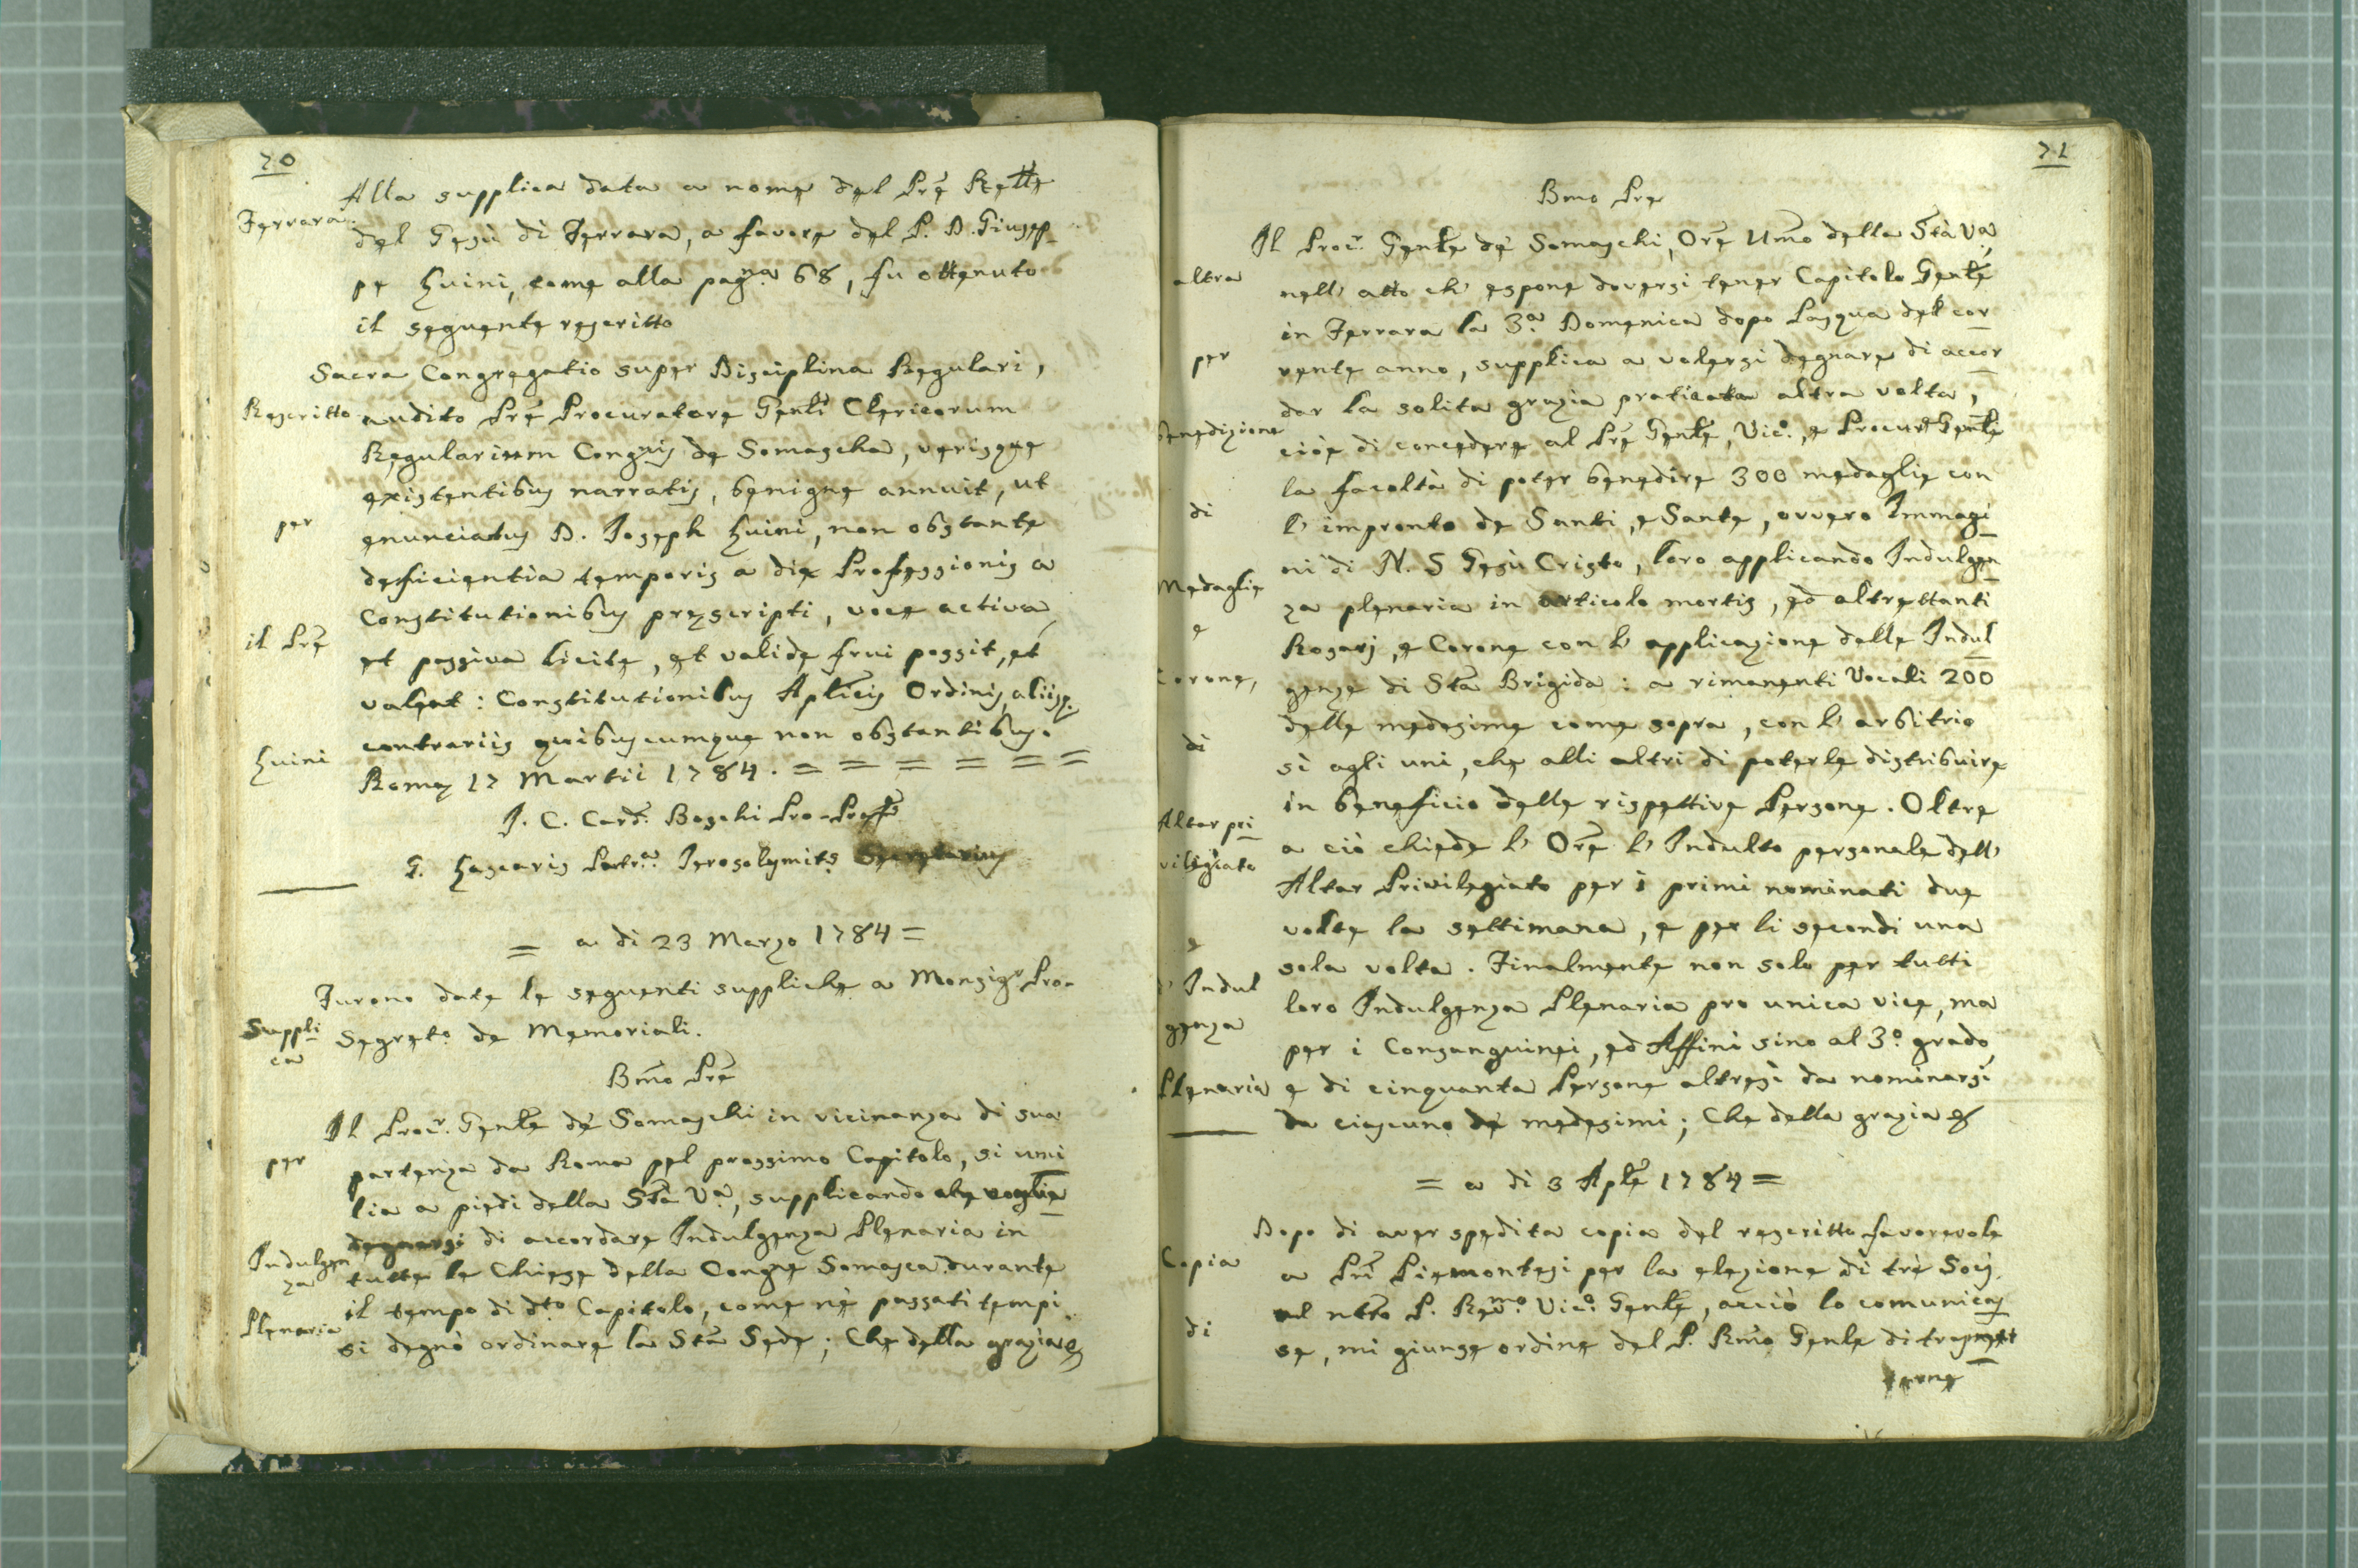 70
Ferrara.
Alla supplica data a nome del Prē Rettē
del Gesù di Ferrara, a favore del P. D. Giusep-
pe Luini, come alla pagna. 68, fu ottenuto
il seguente rescritto
Rescritto
per
il Prē
Luini
Sacra Congregatio super Disciplina Regulari,
audito Prē Procuratore Genli Clericorum
Regularium Congnis de Somascha, verisque
existentibus narratis, benigne annuit, ut
enunciatus D. Joseph Luini, non obstante
deficientia temporis a die Professionis a
Constitutionibus pręscripti, voce activa,
et passiva licite, et valide frui possit, et
valeat: Constitutionibus Aplicis Ordinis, aliisq.
contrariis quibuscumque non obstantibus.
Romę 17 Martii 1784. = = = = = =
J. C. Card. Boschi Pro-Prafs
G. Lascaris Patra. Jerosolymits Secretarius
= a di 23 Marzo 1784 =
Suppli
ca
per
Indulgen
za
Plenaria
Furono date le seguenti suppliche a Monsigr. Pro-
Segreto. de Memoriali.
Bmo Prē
Il Procr. Genle de' Somaschi in vicinanza di sua
partenza da Roma pel prossimo Capitolo, si umi
lia a piedi della Stà Va., supplicando che voglia
degnarsi di accordare Indulgenza Plenaria in
tutte le Chiese della Congne Somasca durante
il tempo di dto Capitolo, come nè passati tempi
si degnò ordinare la Stā Sede; Che della grazia &
71
Bmo Pre
altra
per
benedizione
di
Medaglie
e
Corone,
di
Altar pri
vilegiato
e
d' Indul
genza
Plenaria
Il Procr. Genle de' Somaschi, Orē Umo della Stà Va
nell' atto ch' espone doversi tener Capitolo Genle
in Ferrara la 3a. Domenica dopo Pasqua del cor
rente anno, supplica a volersi degnare di accor
dar la solita grazia praticata altra volta,
cioè di concedere al Prē Genle, Vico., e Procure Genle
la facoltà di poter benedire 300 medaglie con
l' impronto de Santi, e Sante, ovvero Immagi
ni di N. S Gesù Cristo, loro applicando Indulgen
za plenaria in articolo mortis, ed altrettanti
Rosarj, e Corone con l' applicazione delle Indul
genze di Stā Brigida: a rimanenti Vocali 200
delle medesime come sopra, con l' arbitrio
sì agli uni, che alli altri di poterle distribuire
in beneficio delle rispettive Persone. Oltre
a ciò chiede l' Orē l' Indulto personale dell'
Altar Privilegiato per i primi nominati due
volte la settimana, e per li secondi una
sola volta. Finalmente non solo per tutti
loro Indulgenza Plenaria pro unica vice, ma
per i Consanguinei, ed Affini sino al 3o. grado,
e di cinquanta Persone altresì da nominarsi
da ciascuno de' medesimi; Che della grazia &
= a di 3 Aple 1784 =
Copia
di
Dopo di aver spedita copia del rescritto favorevole
a Pri Piemontesi per la elezione di trè Socj,
al ntro P. Remo. Vico. Genle, acciò lo comunicas
se, mi giunse ordine del P. Rmo Genle di trasmet
terne